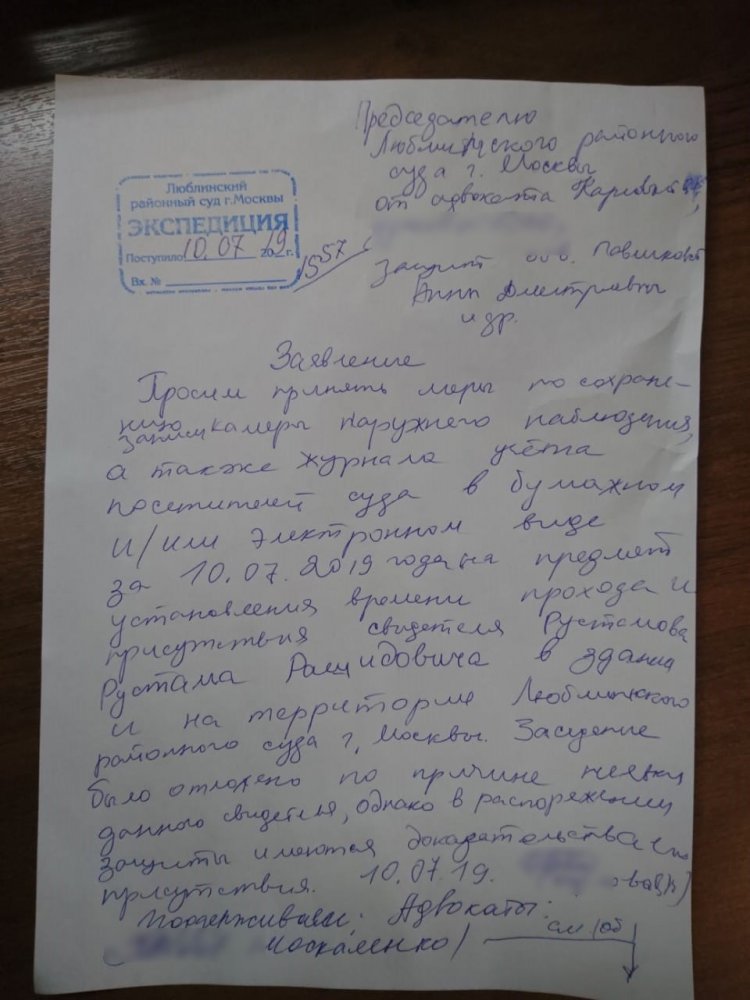 Председателю
Люблинского районного
суда г. Москвы
от адвоката
Люблинский
районный суд г.Москвы
ЭКСПЕДИЦИЯ
Поступило 10.07 2019 г.
Вх. №
15 57
защит. обв. Павликовой
Анны Дмитриевны
и др.
Заявление
Просим принять меры по сохране-
нию записи камеры наружнего наблюдения,
а также журнала учёта
посетителей суда в бумажном
и/или электронном виде
за 10.07.2019 года на предмет
установления времени прохода и
присутствия свидетеля Рустамова
Рустама Рашидовича в здании
и на территории Люблинского
районного суда г. Москвы. Заседание
было отложено по причине неявки
данного свидетеля, однако в распоряжении
защиты имеются доказательства его
присутствия. 10.07.19.
Поддерживаем: Адвокаты:
Москаленко/ см. /об